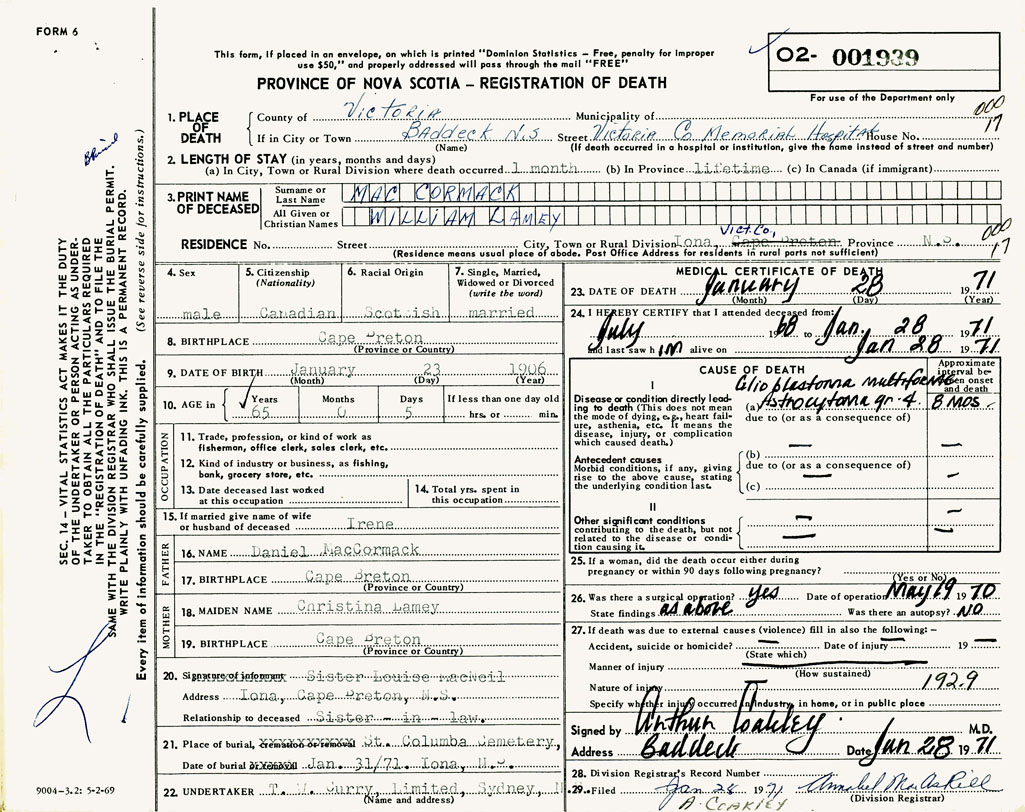 FORM 6
This form, if placed in an envelope, on which is printed "Dominion Statistics – Free, penalty for improper
use $50," and properly addressed will pass through the mail "FREE"
PROVINCE OF NOVA SCOTIA – REGISTRATION OF DEATH
02- 001939
For use of the Department only
000
17
1. PLACE OF DEATH
County of Victoria Municipality of
If in City or Town Baddeck N.S Street Victoria Co Memorial Hospital House No.
(Name) (If death occurred in a hospital or institution, give the name instead of street and number)
2. LENGTH OF STAY (in years, months and days)
(a) In City, Town or Rural Division where death occurred 1 month (b) In Province lifetime (c) In Canada (if immigrant)
3. PRINT NAME OF DECEASED
Surname or Last Name MAC CORMACK
All Given or Christian Names WILLIAM LAMEY
Vict. Co,
RESIDENCE No. Street City, Town or Rural Division Iona, Cape Breton, Province N.S.
(Residence means usual place of abode. Post Office Address for residents in rural parts not sufficient)
000
17
4. Sex
male
5. Citizenship (Nationality)
Canadian
6. Racial Origin
Scottish
7. Single, Married, Widowed or Divorced (write the word)
married
8. BIRTHPLACE Cape Breton
(Province or Country)
9. DATE OF BIRTH January 23 1906
(Month) (Day) (Year)
10. AGE in Years Months Days If less than one day old
65 0 5 hrs. or min.
OCCUPATION
11. Trade, profession, or kind of work as
fisherman, office clerk, sales clerk, etc.
12. Kind of industry or business, as fishing,
bank, grocery store, etc.
13. Date deceased last worked
at this occupation
14. Total yrs. spent in
this occupation
15. If married give name of wife
or husband of deceased Irene
FATHER
16. NAME Daniel MacCormack
17. BIRTHPLACE Cape Breton
(Province or Country)
MOTHER
18. MAIDEN NAME Christina Lamey
19. BIRTHPLACE Cape Breton
(Province or Country)
20. Signature of informant Sister Louise MacNeil
Address Iona, Cape Breton, N.S.
Relationship to deceased Sister - in - law.
21. Place of burial, cremation or removal St. Columba Cemetery,
Date of burial or removal Jan. 31/71. Iona, N.S.
22. UNDERTAKER T. W. Curry, Limited, Sydney, N
(Name and address)
MEDICAL CERTIFICATE OF DEATH
23. DATE OF DEATH January 28 1971
(Month) (Day) (Year)
24. I HEREBY CERTIFY that I attended deceased from:
July 1968 to Jan. 28 1971
and last saw h im alive on Jan 28 1971
CAUSE OF DEATH
Approximate interval between onset and death
I
Glioplastoma multiforme
Disease or condition directly leading to death (This does not mean the mode of dying, e.g., heart failure, asthenia, etc. It means the disease, injury, or complication which caused death.)
(a) Astrocytoma gr. 4. 8 mos.
due to (or as a consequence of)
Antecedent causes
Morbid conditions, if any, giving rise to the above cause, stating the underlying condition last.
(b) —
due to (or as a consequence of)
(c) —
II
Other significant conditions
contributing to the death, but not related to the disease or condition causing it.
25. If a woman, did the death occur either during
pregnancy or within 90 days following pregnancy?
(Yes or No)
26. Was there a surgical operation? yes Date of operation May 19 1970
State findings as above Was there an autopsy? NO
27. If death was due to external causes (violence) fill in also the following:–
Accident, suicide or homicide? — Date of injury — 19 —
(State which)
Manner of injury
(How sustained)
Nature of injury 192.9
Specify whether injury occurred in industry, in home, or in public place
Signed by Arthur Coakley M.D.
Address Baddeck Date Jan 28 1971
28. Division Registrar's Record Number
29. Filed Jan 28 1971 Annabel MacAskill
A. COAKLEY (Division Registrar)
SEC. 14 – VITAL STATISTICS ACT MAKES IT THE DUTY
OF THE UNDERTAKER OR PERSON ACTING AS UNDER-
TAKER TO OBTAIN ALL THE PARTICULARS REQUIRED
IN THE "REGISTRATION OF DEATH" AND TO FILE THE
SAME WITH THE DIVISION REGISTRAR WHO SHALL ISSUE THE BURIAL PERMIT.
WRITE PLAINLY WITH UNFADING INK. THIS IS A PERMANENT RECORD.
Every item of information should be carefully supplied. (See reverse side for instructions.)
9004-3.2: 5-2-69